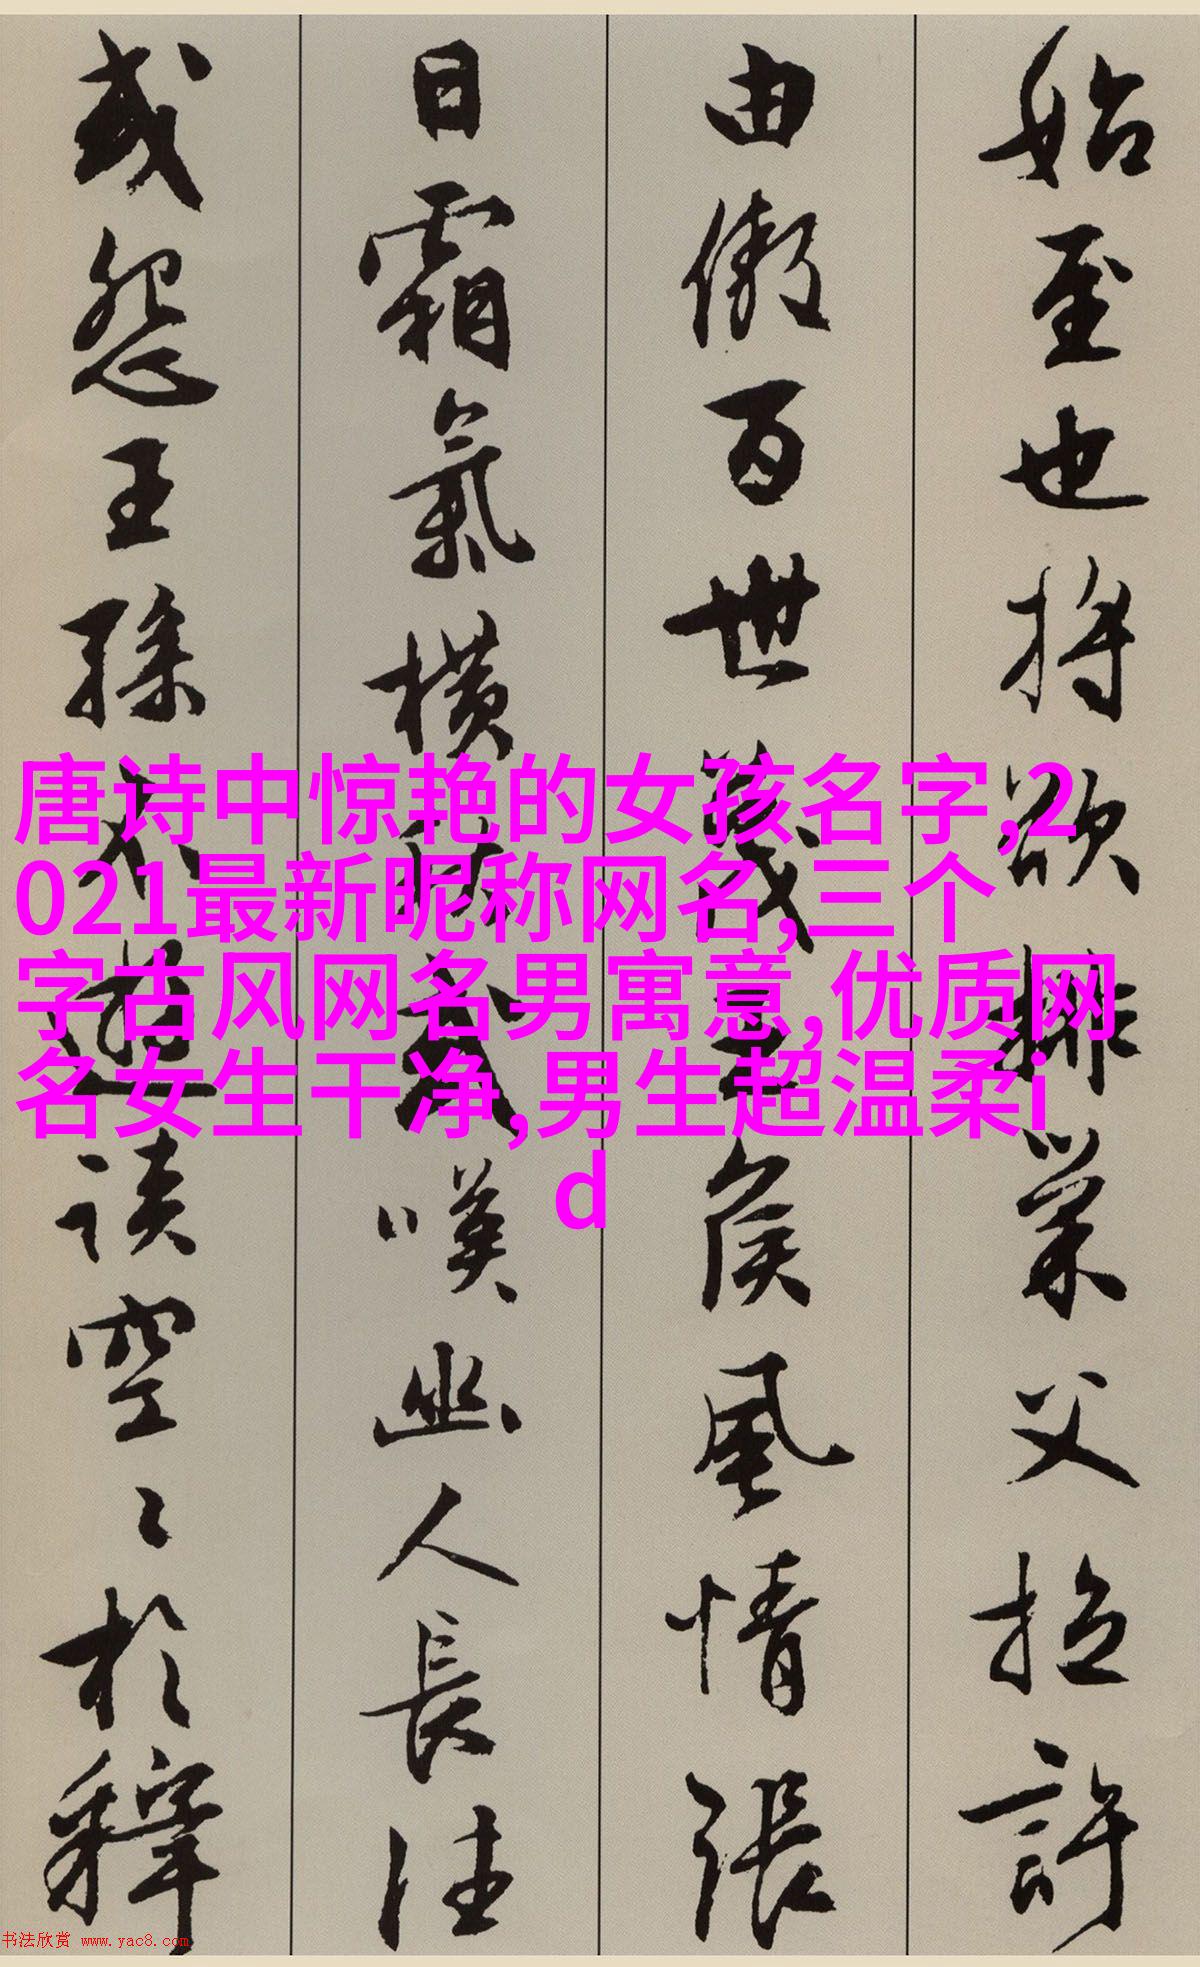 始至也將欲排巢父拉許
由傲百世蔑王侯風情張
日霜氣橫秋或嘆幽人長往
或怨王孫不遊談空〻於釋
唐诗中惊艳的女孩名字,2
021最新昵称网名,三个
字古风网名男寓意,优质网
名女生干净,男生超温柔i
d
书法欣赏 www.yac8.com